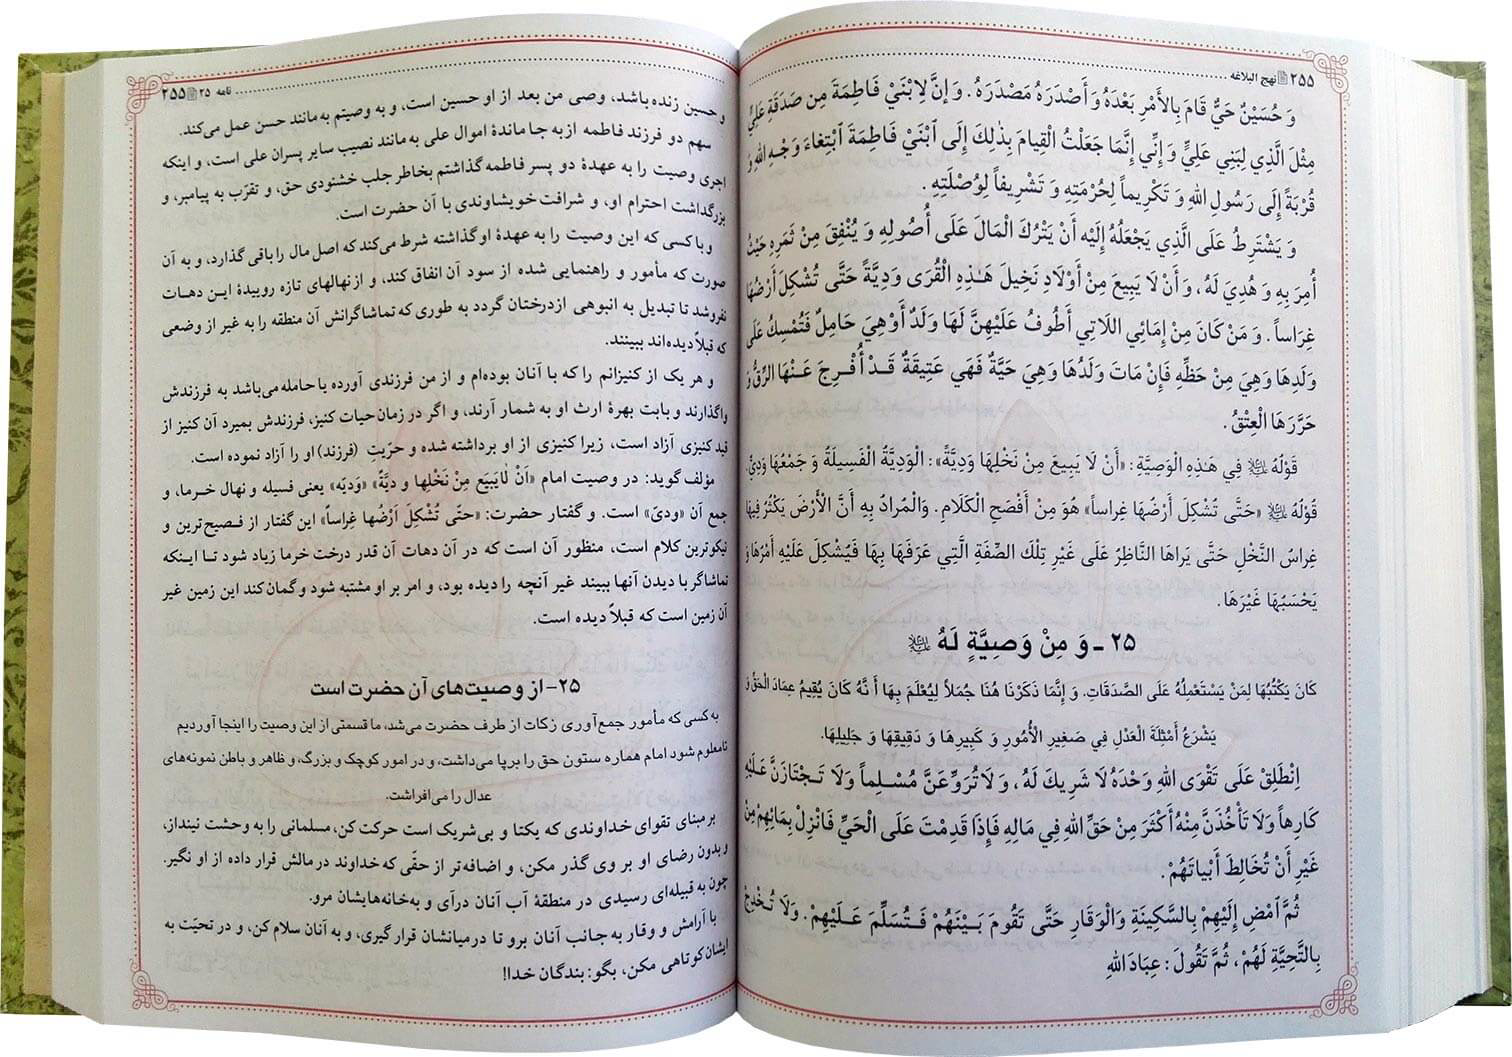 ۲۵۵ نهج البلاغه
وَ حُسَيْنٌ حَيٌّ قَامَ بِالأَمْرِ بَعْدَهُ وَ أَصْدَرَهُ مَصْدَرَهُ . وَ إِنَّ لِابْنَيْ فَاطِمَةَ مِن صَدَقَةِ عَلِيٍّ
مِثْلَ الَّذِي لِبَنِي عَلِيٍّ وَ إِنِّي إِنَّمَا جَعَلْتُ الْقِيَامَ بِذٰلِكَ إِلَى ابْنَيْ فَاطِمَةَ ابْتِغَاءَ وَجْهِ اللهِ وَ
قُرْبَةً إِلَى رَسُولِ اللهِ وَ تَكْرِيماً لِحُرْمَتِهِ وَ تَشْرِيفاً لِوُصْلَتِهِ .
وَ يَشْتَرِطُ عَلَى الَّذِي يَجْعَلُهُ إِلَيْهِ أَنْ يَتْرُكَ الْمَالَ عَلَى أُصُولِهِ وَ يُنْفِقَ مِنْ ثَمَرِهِ حَيْثُ
أُمِرَ بِهِ وَ هُدِيَ لَهُ ، وَ أَنْ لَا يَبِيعَ مِنْ أَوْلَادِ نَخِيلِ هَـٰذِهِ الْقُرَى وَدِيَّةً حَتَّى تُشْكِلَ أَرْضُهَا
غِرَاساً . وَ مَنْ كَانَ مِنْ إِمَائِي اللَّاتِي أَطُوفُ عَلَيْهِنَّ لَهَا وَلَدٌ أَوْ هِيَ حَامِلٌ فَتُمْسَكُ عَلَى
وَلَدِهَا وَهِيَ مِنْ حَظِّهِ فَإِنْ مَاتَ وَلَدُهَا وَهِيَ حَيَّةٌ فَهِيَ عَتِيقَةٌ قَدْ أُفْرِجَ عَنْهَا الرِّقُّ وَ
حَرَّرَهَا الْعِتْقُ .
قَوْلُهُ ﷷ فِي هَـٰذِهِ الْوَصِيَّةِ: «أَنْ لَا يَبِيعَ مِنْ نَخْلِهَا وَدِيَّةً»: الْوَدِيَّةُ الْفَسِيلَةُ وَ جَمْعُهَا وَدِيٌّ.
قَوْلُهُ ﷷ «حَتَّى تُشْكِلَ أَرْضُهَا غِرَاساً» هُوَ مِنْ أَفْصَحِ الْكَلَامِ. وَالْمُرَادُ بِهِ أَنَّ الْأَرْضَ يَكْثُرُ فِيهَا
غِرَاسُ النَّخْلِ حَتَّى يَرَاهَا النَّاظِرُ عَلَى غَيْرِ تِلْكَ الصِّفَةِ الَّتِي عَرَفَهَا بِهَا فَيُشْكِلَ عَلَيْهِ أَمْرُهَا وَ
يَحْسَبُهَا غَيْرَهَا .
۲۵ - وَ مِنْ وَصِيَّةٍ لَهُ
كَانَ يَكْتُبُهَا لِمَنْ يَسْتَعْمِلُهُ عَلَى الصَّدَقَاتِ. وَ إِنَّمَا ذَكَرْنَا هُنَا جُمَلاً لِيُعْلَمَ بِهَا أَنَّهُ كَانَ يُقِيمُ عِمَادَ الْحَقِّ وَ
يَشْرَعُ أَمْثِلَةَ الْعَدْلِ فِي صَغِيرِ الْأُمُورِ وَ كَبِيرِهَا وَ دَقِيقِهَا وَ جَلِيلِهَا.
اِنْطَلِقْ عَلَى تَقْوَى اللهِ وَحْدَهُ لَا شَرِيكَ لَهُ ، وَ لَا تُرَوِّعَنَّ مُسْلِماً وَلَا تَجْتَازَنَّ عَلَيْهِ
كَارِهاً وَلَا تَأْخُذَنَّ مِنْهُ أَكْثَرَ مِنْ حَقِّ اللهِ فِي مَالِهِ فَإِذَا قَدِمْتَ عَلَى الْحَيِّ فَانْزِلْ بِمَائِهِمْ مِنْ
غَيْرِ أَنْ تُخَالِطَ أَبْيَاتَهُمْ.
ثُمَّ امْضِ إِلَيْهِمْ بِالسَّكِينَةِ وَالْوَقَارِ حَتَّى تَقُومَ بَيْنَهُمْ فَتُسَلِّمَ عَلَيْهِمْ . وَلَا تُخْدِجْ
بِالتَّحِيَّةِ لَهُمْ ، ثُمَّ تَقُولَ : عِبَادَ اللهِ
نامه ۲۵ ۲۵۵
و حسین زنده باشد، وصی من بعد از او حسین است، و به وصیتم به مانند حسن عمل می‌کند.
سهم دو فرزند فاطمه از به جا ماندهٔ اموال علی به مانند نصیب سایر پسران علی است، و اینکه
اجری وصیت را به عهدهٔ دو پسر فاطمه گذاشتم بخاطر جلب خشنودی حق، و تقرّب به پیامبر، و
بزرگداشت احترام او، و شرافت خویشاوندی با آن حضرت است.
و با کسی که این وصیت را به عهدهٔ او گذاشته شرط می‌کند که اصل مال را باقی گذارد، و به آن
صورت که مأمور و راهنمایی شده از سود آن انفاق کند، و از نهالهای تازه روییدهٔ این دهات
نفروشد تا تبدیل به انبوهی ازدرختان گردد به طوری که تماشاگرانش آن منطقه را به غیر از وضعی
که قبلاً دیده‌اند ببینند.
و هر یک از کنیزانم را که با آنان بوده‌ام و از من فرزندی آورده یا حامله می‌باشد به فرزندش
واگذارند و بابت بهرهٔ ارث او به شمار آرند، و اگر در زمان حیات کنیز، فرزندش بمیرد آن کنیز از
قید کنیزی آزاد است، زیرا کنیزی از او برداشته شده و حرّیتِ (فرزند) او را آزاد نموده است.
مؤلف گوید: در وصیت امام «اَنْ لٰایَبیَع مِنْ نَخْلِها و دیَّةً» «وَدیّه» یعنی فسیله و نهال خرما، و
جمع آن «ودیّ» است. و گفتار حضرت: «حتّی تُشْکِلَ اَرْضُها غِراساً» این گفتار از فصیح‌ترین و
نیکوترین کلام است، منظور آن است که در آن دهات آن قدر درخت خرما زیاد شود تا اینکه
تماشاگر با دیدن آنها ببیند غیر آنچه را دیده بود، و امر بر او مشتبه شود و گمان کند این زمین غیر
آن زمین است که قبلاً دیده است.
۲۵- از وصیت‌های آن حضرت است
به کسی که مأمور جمع‌آوری زکات از طرف حضرت می‌شد، ما قسمتی از این وصیت را اینجا آوردیم
تامعلوم شود امام هماره ستون حق را برپا می‌داشت، و در امور کوچک و بزرگ، و ظاهر و باطن نمونه‌های
عدال را می‌افراشت.
بر مبنای تقوای خداوندی که یکتا و بی‌شریک است حرکت کن، مسلمانی را به وحشت نینداز،
و بدون رضای او بر وی گذر مکن، و اضافه‌تر از حقّی که خداوند در مالش قرار داده از او نگیر.
چون به قبیله‌ای رسیدی در منطقهٔ آب آنان درآی و به‌خانه‌هایشان مرو.
با آرامش و وقار به جانب آنان برو تا در میانشان قرار گیری، و به آنان سلام کن، و در تحیّت به
ایشان کوتاهی مکن، بگو: بندگان خدا!